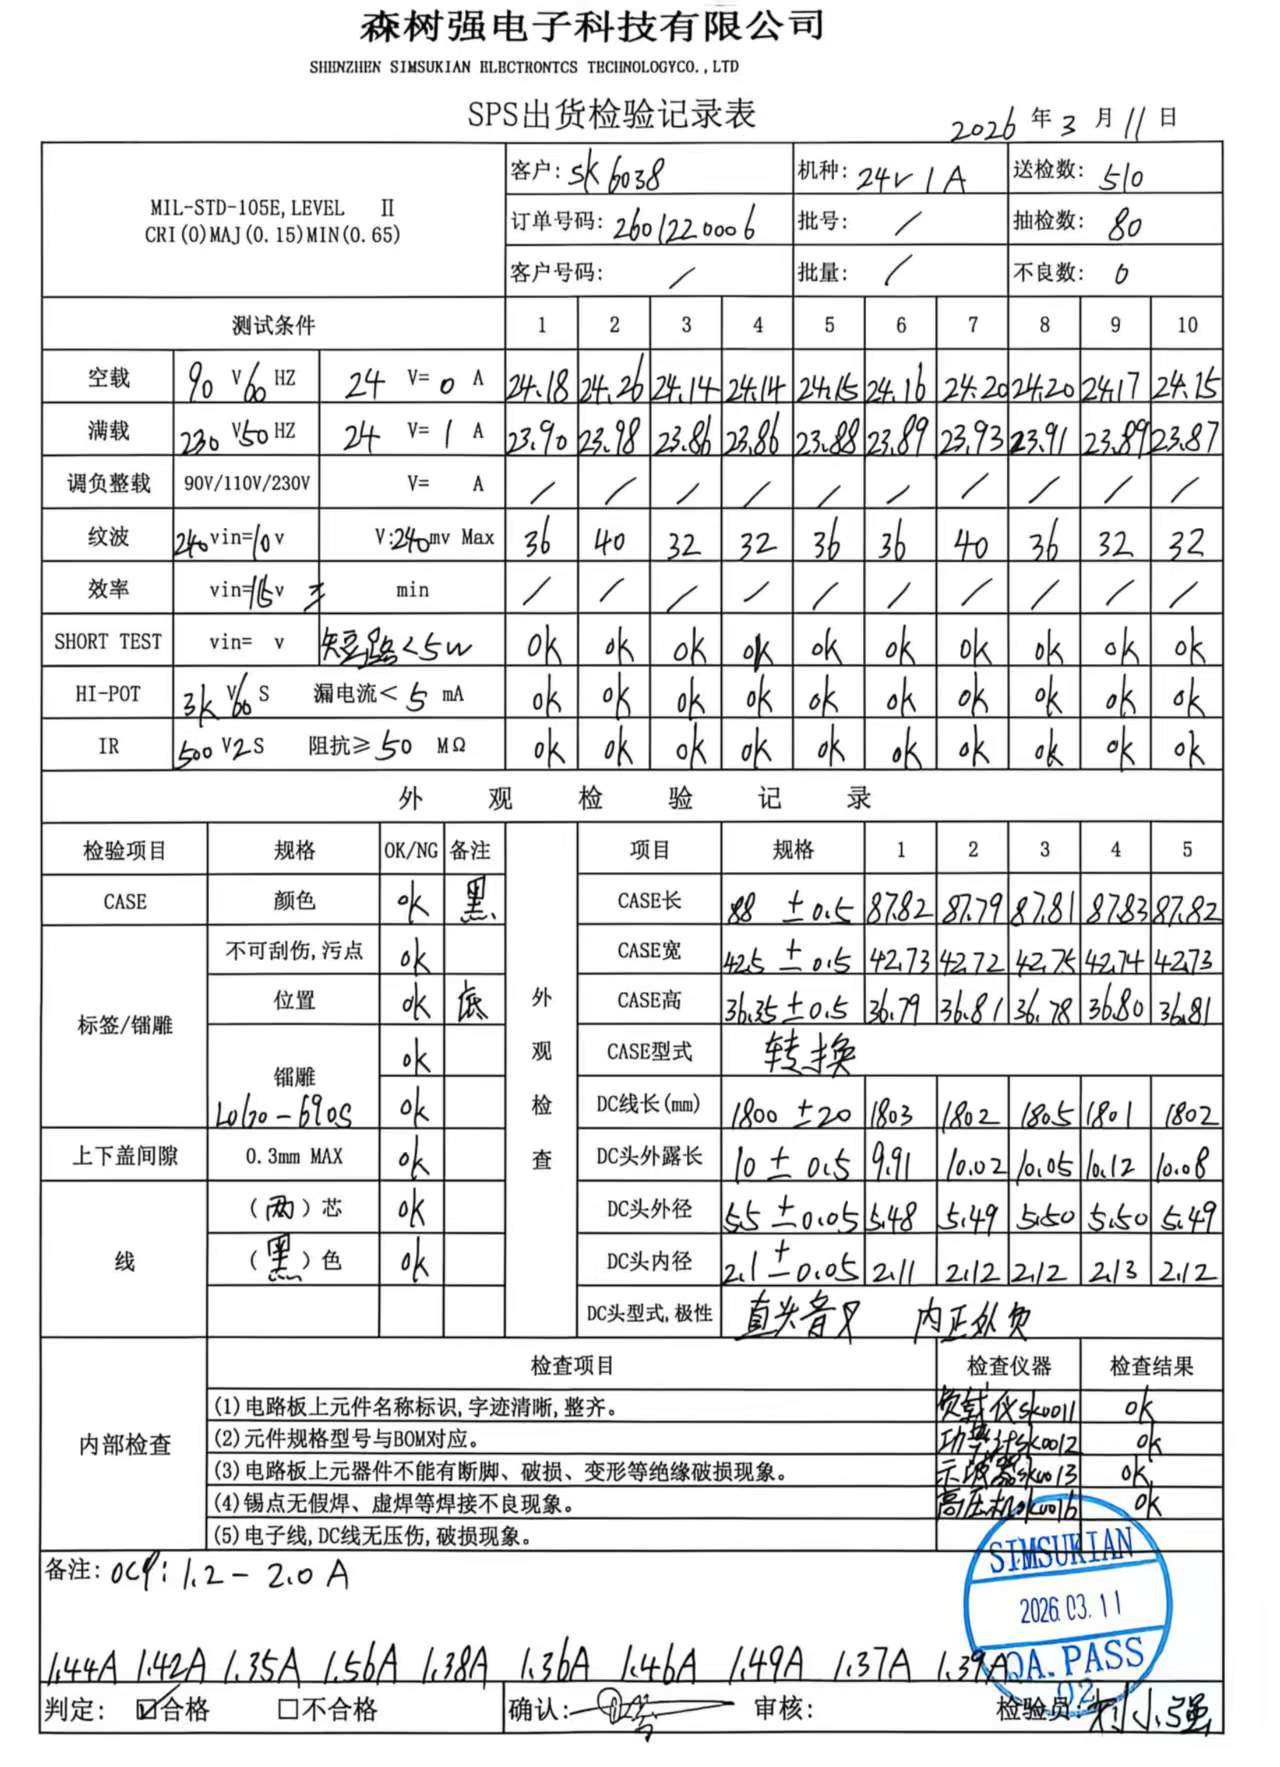 森树强电子科技有限公司
SHENZHEN SIMSUKIAN ELECTRONTCS TECHNOLOGYCO.,LTD
SPS出货检验记录表
2026 年 3 月 11 日
MIL-STD-105E, LEVEL II
CRI(0)MAJ(0.15)MIN(0.65)
客户: SK6038 机种: 24V 1A 送检数: 510
订单号码: 2601220006 批号: / 抽检数: 80
客户号码: / 批量: / 不良数: 0
测试条件 1 2 3 4 5 6 7 8 9 10
空载 90 V 60 HZ 24 V= 0 A 24.18 24.26 24.14 24.14 24.15 24.16 24.20 24.20 24.17 24.15
满载 230 V 50 HZ 24 V= 1 A 23.90 23.98 23.86 23.86 23.88 23.89 23.93 23.91 23.89 23.87
调负整载 90V/110V/230V V= A / / / / / / / / / /
纹波 240 vin=10v V:240mv Max 36 40 32 32 36 36 40 36 32 32
效率 vin=115v ≥ min / / / / / / / / / /
SHORT TEST vin= v 短路<5W OK OK OK OK OK OK OK OK OK OK
HI-POT 3K V 60 S 漏电流< 5 mA OK OK OK OK OK OK OK OK OK OK
IR 500 V 2 S 阻抗≥ 50 MΩ OK OK OK OK OK OK OK OK OK OK
外观检验记录
检验项目 规格 OK/NG 备注 项目 规格 1 2 3 4 5
CASE 颜色 OK 黑 CASE长 88 ±0.5 87.82 87.79 87.81 87.83 87.82
标签/镭雕 不可刮伤,污点 OK CASE宽 42.5 ±0.5 42.73 42.72 42.75 42.74 42.73
位置 OK 底 CASE高 36.35±0.5 36.79 36.81 36.78 36.80 36.81
外观检查
镭雕 OK CASE型式 转换
LOGO-690S OK DC线长(mm) 1800 ±20 1803 1802 1805 1801 1802
上下盖间隙 0.3mm MAX OK DC头外露长 10 ± 0.5 9.91 10.02 10.05 10.12 10.08
线 (两)芯 OK DC头外径 5.5 ±0.05 5.48 5.49 5.50 5.50 5.49
(黑)色 OK DC头内径 2.1 ±0.05 2.11 2.12 2.12 2.13 2.12
DC头型式,极性 直头音叉 内正外负
内部检查 检查项目 检查仪器 检查结果
(1)电路板上元件名称标识,字迹清晰,整齐。 负载仪SK0011 OK
(2)元件规格型号与BOM对应。 功率计SK0012 OK
(3)电路板上元器件不能有断脚、破损、变形等绝缘破损现象。 示波器SK0013 OK
(4)锡点无假焊、虚焊等焊接不良现象。 高压机SK0016 OK
(5)电子线,DC线无压伤,破损现象。
备注: OCP: 1.2 - 2.0 A
SIMSUKIAN
2026.03.11
QA.PASS
02
1.44A 1.42A 1.35A 1.56A 1.38A 1.36A 1.46A 1.49A 1.37A 1.39A
判定: ☑合格 □不合格 确认: 审核: 检验员: 小强